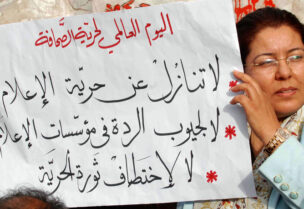 اليوم العالمي لحرية الصحافة
لا تنازل عن حريّة الإعلام
* لا لجيوب الردة في مؤسّسات الإعلام
* لا لاختطاف ثورة الحريّة *